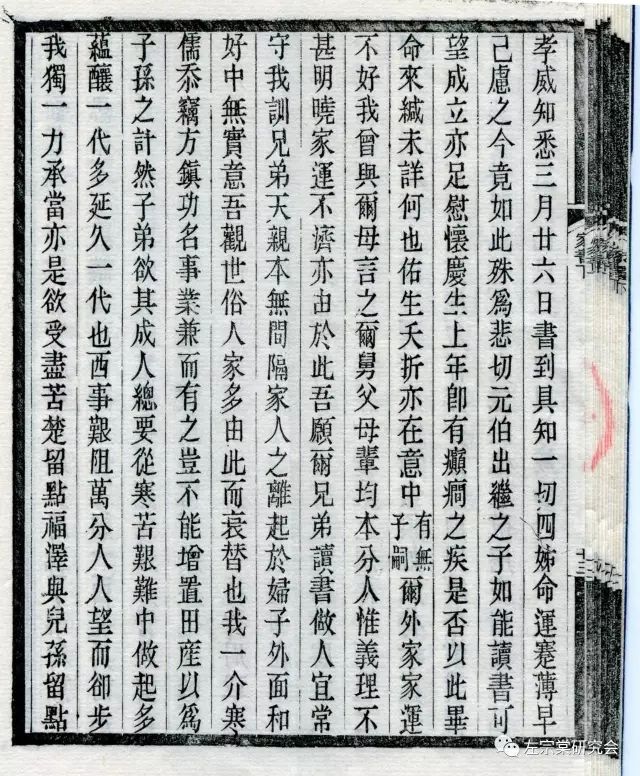 孝威知悉三月廿六日書到具知一切四姊命運蹇薄早
已慮之今竟如此殊為悲切元伯出繼之子如能讀書可
望成立亦足慰懷慶生上年卽有癲癇之疾是否以此畢
命來緘未詳何也佑生夭折亦在意中有無子嗣爾外家家運
不好我曾與爾母言之爾舅父母輩均本分人惟義理不
甚明曉家運不濟亦由於此吾願爾兄弟讀書做人宜常
守我訓兄弟天親本無間隔家人之離起於婦子外面和
好中無實意吾觀世俗人家多由此而衰替也我一介寒
儒忝竊方鎮功名事業兼而有之豈不能增置田產以為
子孫之計然子弟欲其成人總要從寒苦艱難中做起多
蘊釀一代多延久一代也西事艱阻萬分人人望而卻步
我獨一力承當亦是欲受盡苦楚留點福澤與兒孫留點
十三
左宗棠研究会